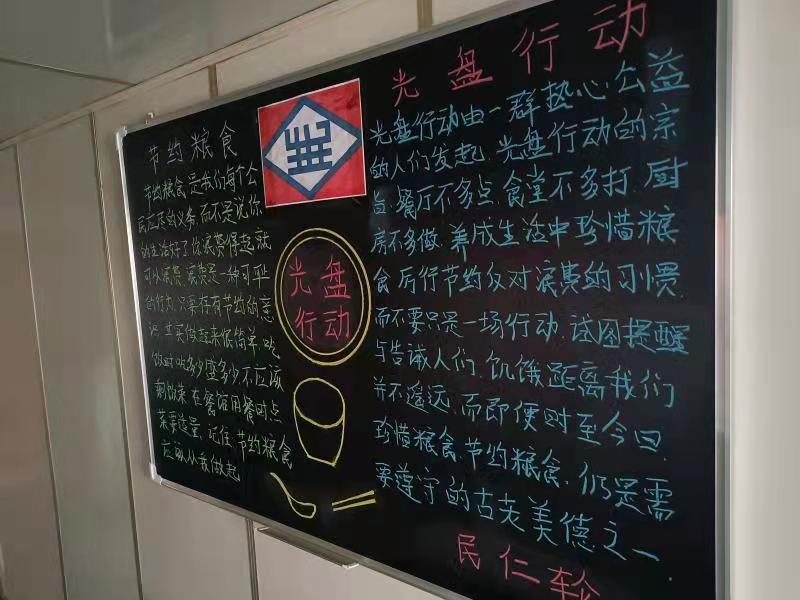 节约粮食
节约粮食是我们每个公
民应尽的义务,而不是说你
的生活好了你浪费得起就
可以浪费,浪费是一种可耻
的行为,只要存有节约的意
识,其实做起来很简单,吃
饭时吃多少盛多少,不应该
剩饭菜,在餐馆用餐时点
菜要适量,记住,节约粮食
应该从我做起
光盘
行动
光盘行动
光盘行动由一群热心公益
的人们发起,光盘行动的宗
旨:餐厅不多点,食堂不多打,厨
房不多做,养成生活中珍惜粮
食,厉行节约反对浪费的习惯,
而不要只是一场行动,试图提醒
与告诫人们,饥饿距离我们
并不遥远,而即便时至今日,
珍惜粮食,节约粮食,仍是需
要遵守的古老美德之一.
民仁轮